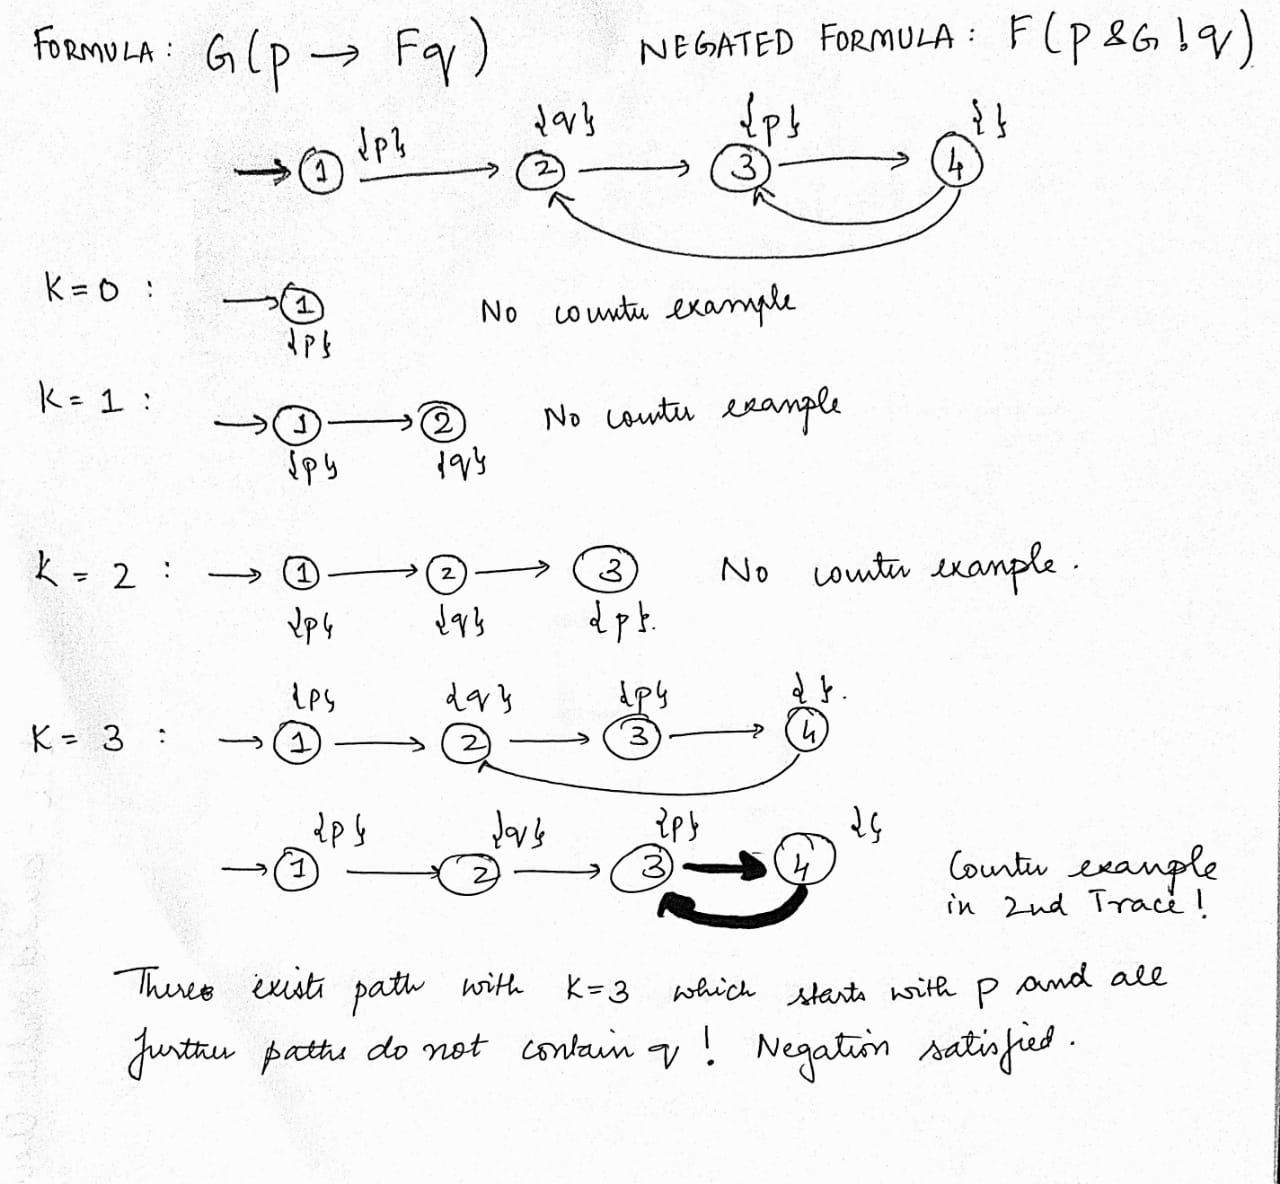 FORMULA: G(p → Fq) NEGATED FORMULA: F(p & G !q)
{p} {q} {p} { }
1 2 3 4
K=0 : 1 No counter example
{p}
K=1 : 1 2 No counter example
{p} {q}
K=2 : 1 2 3 No counter example.
{p} {q} {p}.
{p} {q} {p} { }.
K=3 : 1 2 3 4
{p} {q} {p} { }
1 2 3 4 Counter example
in 2nd Trace!
There exists path with K=3 which starts with p and all
further paths do not contain q! Negation satisfied.